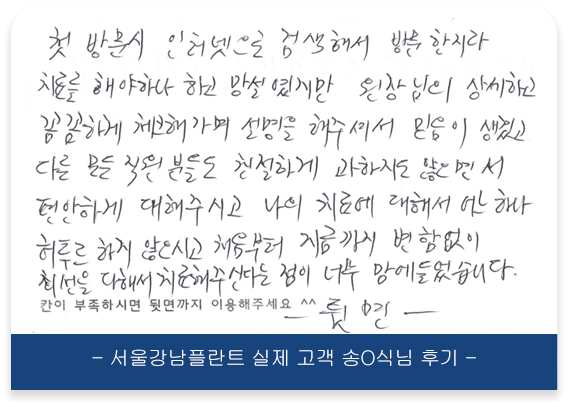 첫 방문시 인터넷으로 검색해서 방문한지라
치료를 해야하나 하고 망설였지만 원장님의 상세하고
꼼꼼하게 체크해가며 설명을 해주셔서 믿음이 생겼고
다른 모든 직원분들도 친절하게 과하지도 않으면서
편안하게 대해주시고 나의 치료에 대해서 어느 하나
허투로 하지 않으시고 처음부터 지금까지 변함없이
최선을 다해서 치료해주신다는 점이 너무 맘에들었습니다.
칸이 부족하시면 뒷면까지 이용해주세요 ^^ — 뒷면 —
- 서울강남플란트 실제 고객 송O식님 후기 -